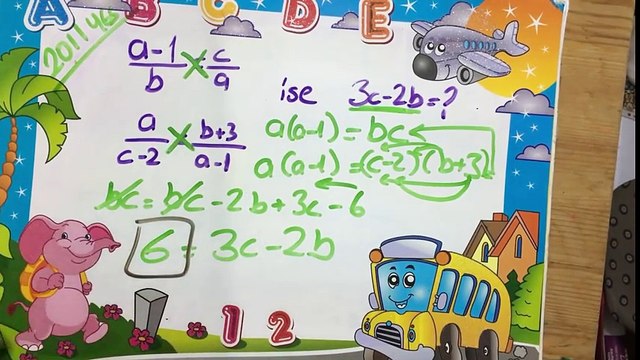 A B C D E
201146
a-1/b = c/a
ise 3c-2b=?
a/c-2 = b+3/a-1
a(a-1) = bc
a(a-1) = (c-2)(b+3)
bc = bc - 2b + 3c - 6
6 = 3c - 2b
1 2